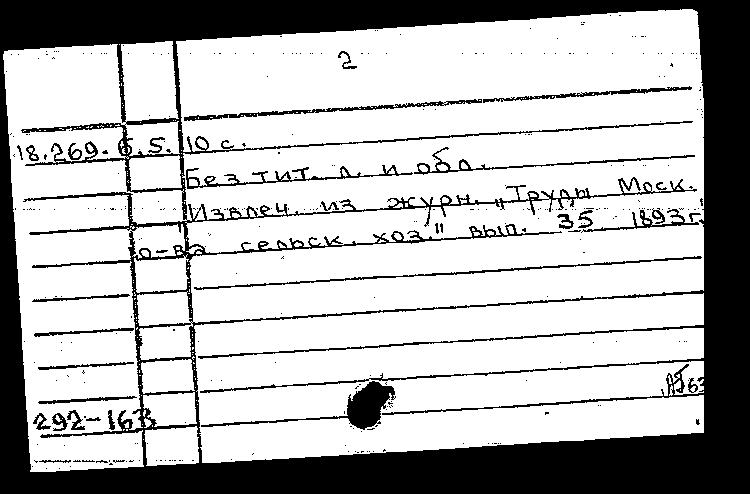 2
18.269.6.5. 10 с.
Без тит. л. и обл.
Извлеч. из журн. „Труды Моск.
о-ва сельск. хоз." вып. 35 1893 г.
292-163